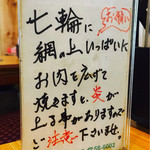 お願い
七輪に
網の上いっぱいに
お肉を広げて
焼きますと、炎が
上る事がありますので
ご注意下さいませ。